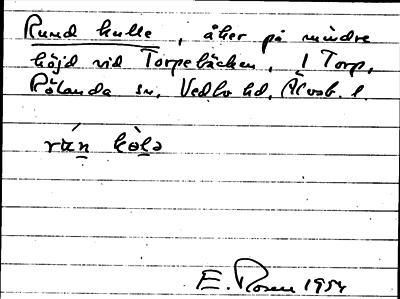 Rund kulle, åker på mindre
höjd vid Torpebäcken, 1 Torp,
Rölanda sn, Vedbo hd, Älvsb. l.
rún kòlə
E. Rosen 1954